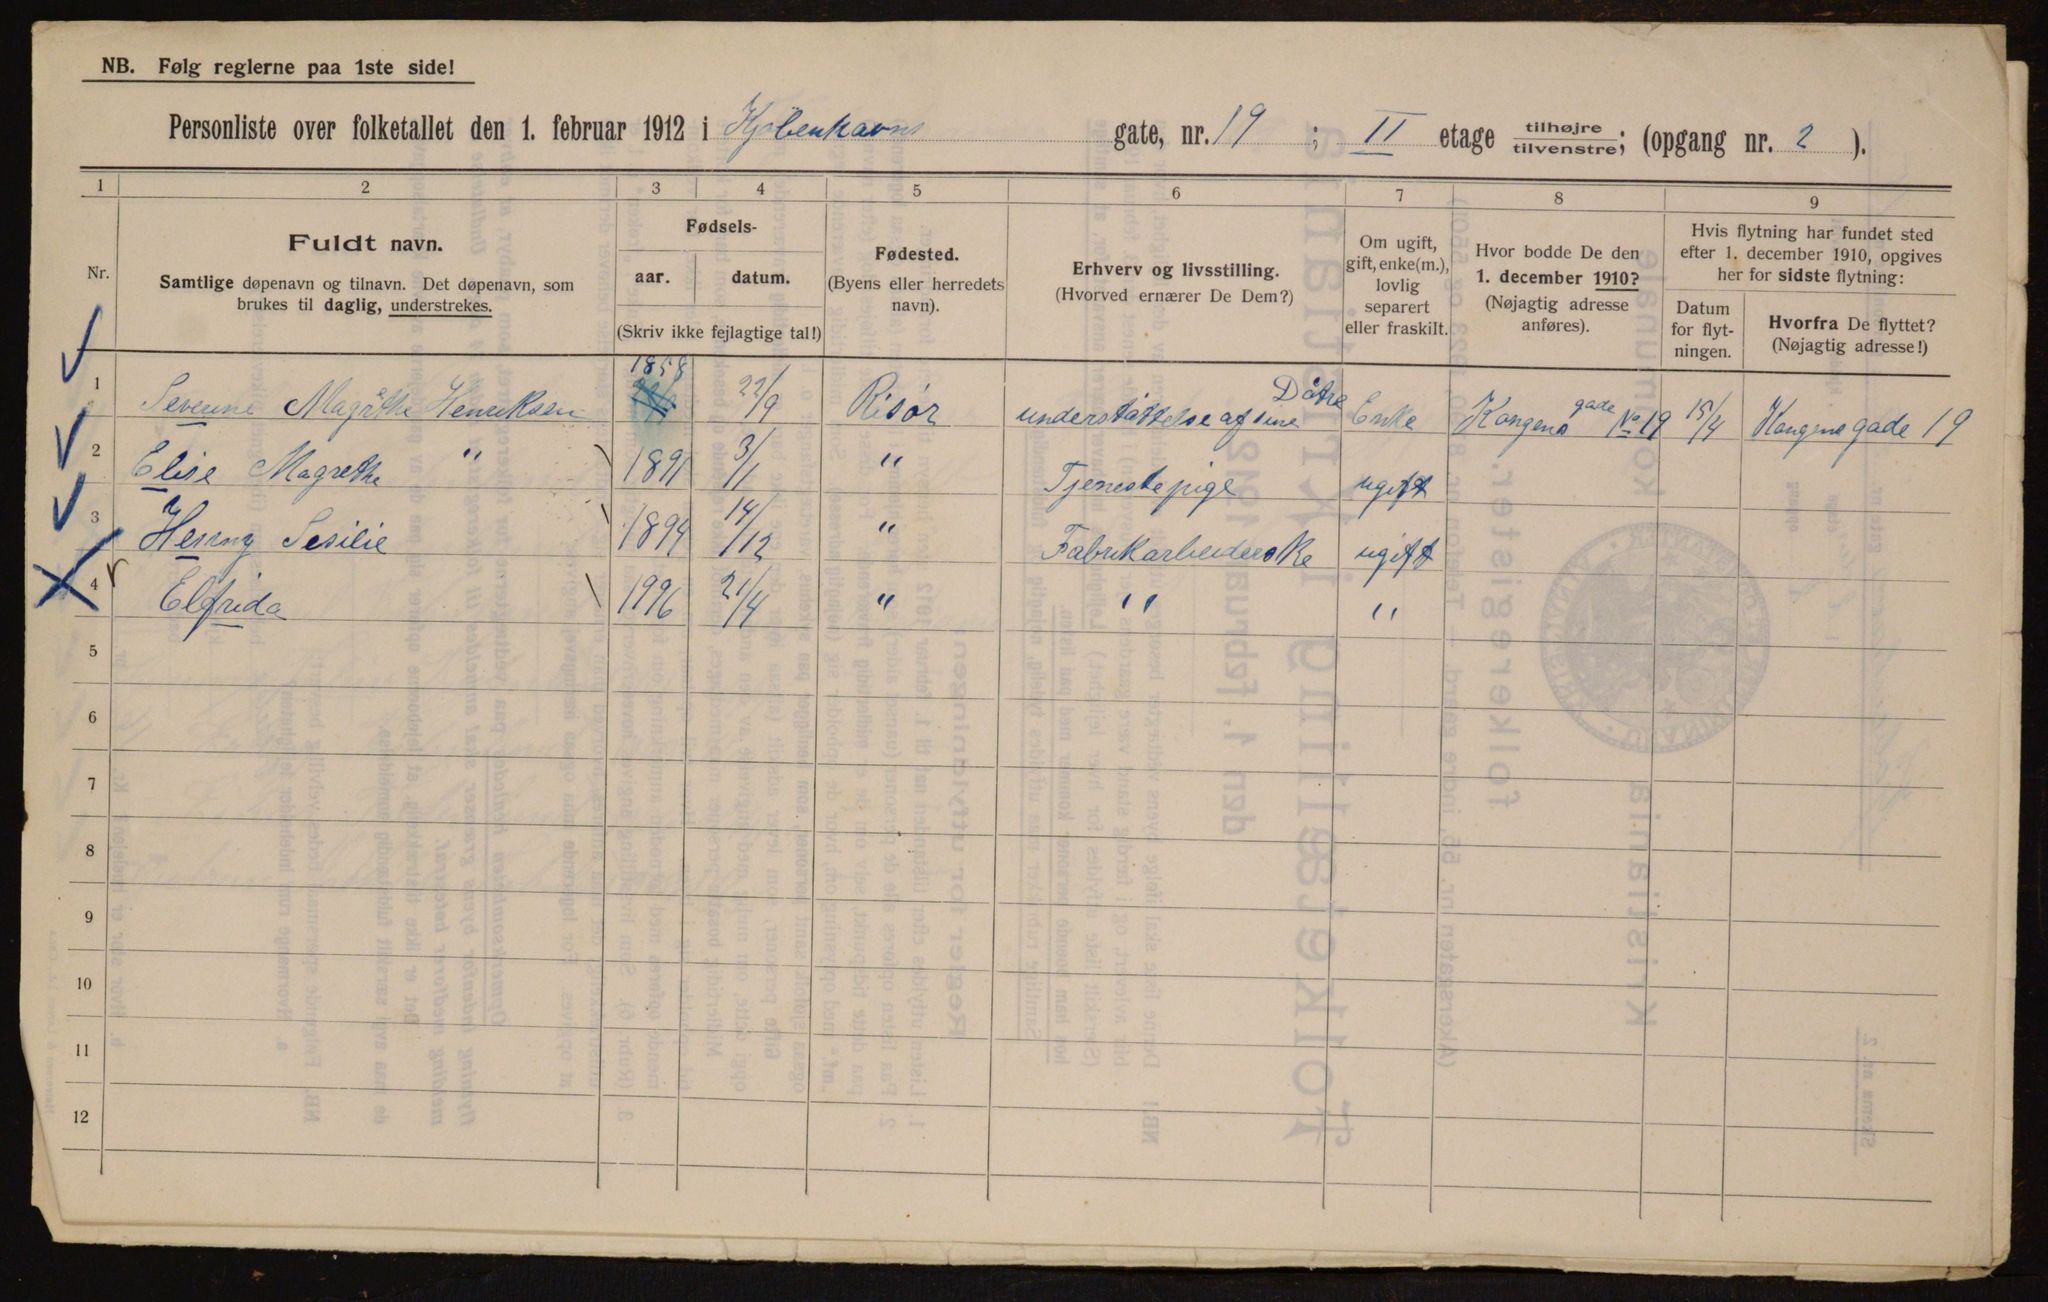 NB. Følg reglerne paa 1ste side!
Personliste over folketallet den 1. februar 1912 i Kjöbenhavns gate, nr. 19 ; II etage tilhøjre / tilvenstre; (opgang nr. 2 ).
1 2 3 4 5 6 7 8 9
Nr.
Fuldt navn.
Samtlige døpenavn og tilnavn. Det døpenavn, som
brukes til daglig, understrekes.
Fødsels-
aar. datum.
(Skriv ikke fejlagtige tal!)
Fødested.
(Byens eller herredets
navn).
Erhverv og livsstilling.
(Hvorved ernærer De Dem?)
Om ugift,
gift, enke(m.),
lovlig
separert
eller fraskilt.
Hvor bodde De den
1. december 1910?
(Nøjagtig adresse
anføres).
Hvis flytning har fundet sted
efter 1. december 1910, opgives
her for sidste flytning:
Datum
for flyt-
ningen.
Hvorfra De flyttet?
(Nøjagtig adresse!)
1 Severine Magrethe Henriksen 1858 22/9 Risör understöttelse af sine Dötre Enke Kongens gade No 19 15/4 Kongens gade 19
2 Elise Magrethe " 1891 3/1 " Tjenestepige ugift
3 Henny Sesilie 1894 14/12 " Fabrikarbeiderske ugift
4 Elfrida 1996 21/4 " " "
5
6
7
8
9
10
11
12